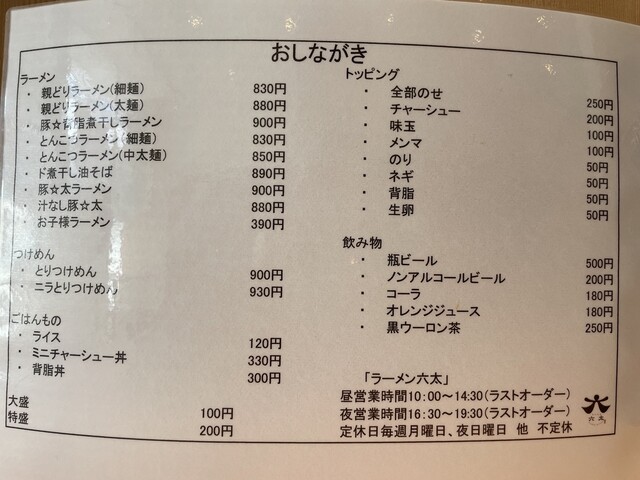 おしながき
ラーメン
・ 親どりラーメン(細麺) 830円
・ 親どりラーメン(太麺) 880円
・ 豚☆背脂煮干しラーメン 900円
・ とんこつラーメン(細麺) 830円
・ とんこつラーメン(中太麺) 850円
・ ド煮干し油そば 890円
・ 豚☆太ラーメン 900円
・ 汁なし豚☆太 880円
・ お子様ラーメン 390円
つけめん
・ とりつけめん 900円
・ ニラとりつけめん 930円
ごはんもの
・ ライス 120円
・ ミニチャーシュー丼 330円
・ 背脂丼 300円
大盛 100円
特盛 200円
トッピング
・ 全部のせ 250円
・ チャーシュー 200円
・ 味玉 100円
・ メンマ 100円
・ のり 50円
・ ネギ 50円
・ 背脂 50円
・ 生卵 50円
飲み物
・ 瓶ビール 500円
・ ノンアルコールビール 200円
・ コーラ 180円
・ オレンジジュース 180円
・ 黒ウーロン茶 250円
「ラーメン六太」
昼営業時間10:00〜14:30(ラストオーダー)
夜営業時間16:30〜19:30(ラストオーダー)
定休日毎週月曜日、夜日曜日 他 不定休